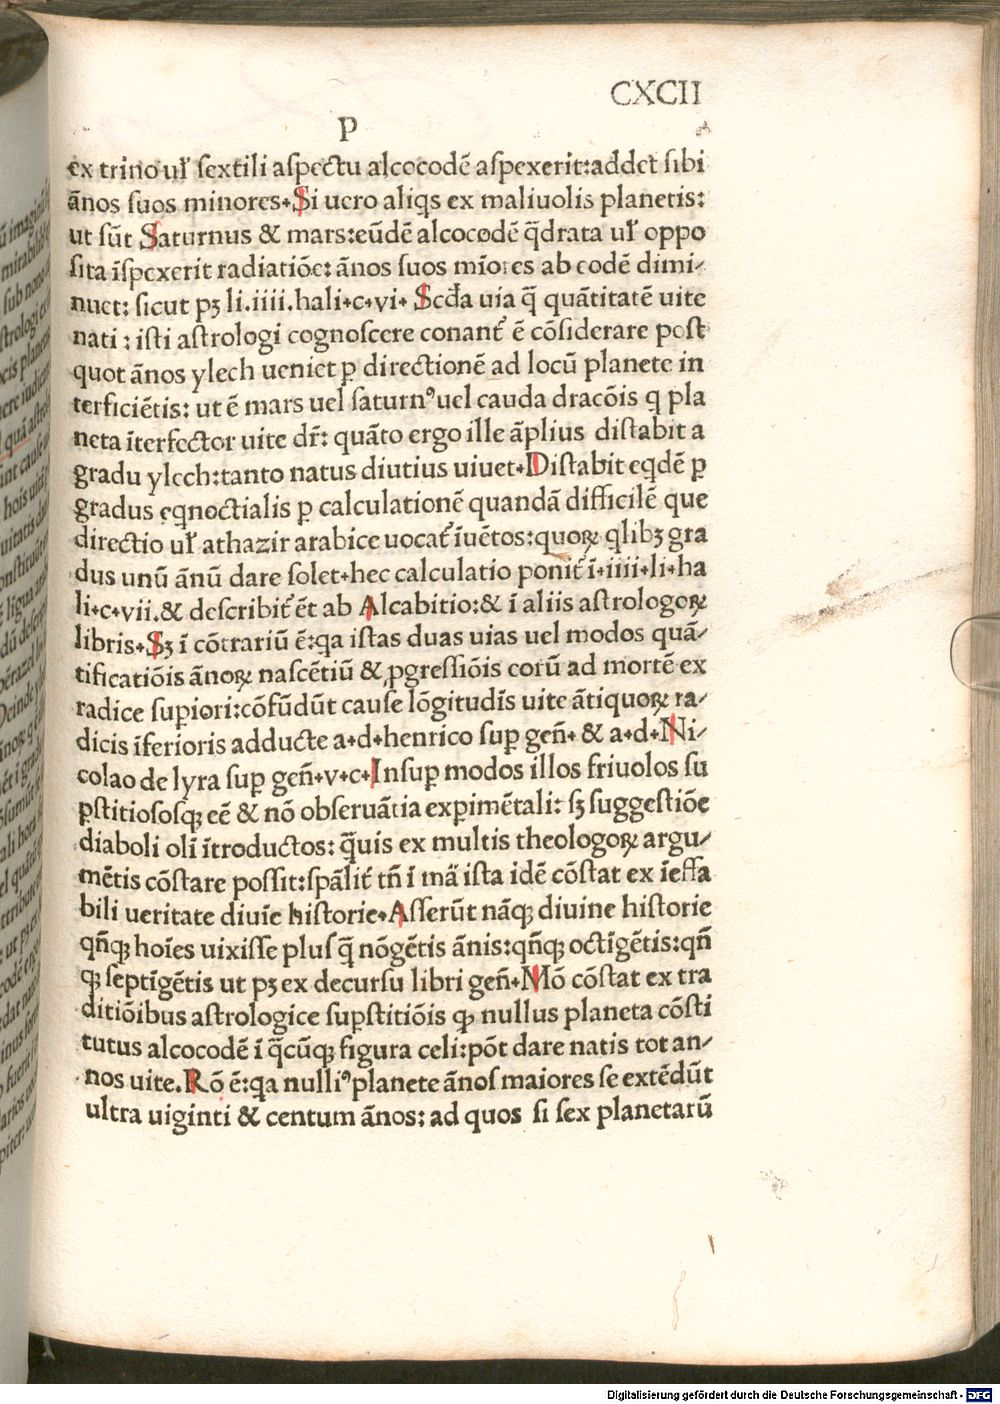 CXCII
P
ex trino uł sextili aspectu alcocodē aspexerit:addet sibi
ānos suos minores. Si uero aliq̄s ex maliuolis planetis:
ut sūt Saturnus & mars:eūdē alcocodē q̄drata uł oppo
sita īspexerit radiatiōe: ānos suos mīores ab eodē dimi-
nuet: sicut pꝫ li.iiii.hali.c.vi. Scđa uia q̄ quātitatē uite
nati : isti astrologi cognoscere conant᷑ ē cōsiderare post
quot ānos ylech ueniet ꝑ directionē ad locū planete in
terficiētis: ut ē mars uel saturnꝰ uel cauda dracōis q̄ pla
neta īterfector uite dr̄: quāto ergo ille āplius distabit a
gradu ylech:tanto natus diutius uiuet. Distabit eq̄dē ꝑ
gradus eq̄noctialis ꝑ calculationē quandā difficilē que
directio uł athazir arabice uocat᷑ iuētos:quoꝝ q̄libꝫ gra
dus unū ānū dare solet.hec calculatio ponit᷑ ī.iiii.li.ha
li.c.vii.& describit᷑ ēt ab Alcabitio:& ī aliis astrologoꝝ
libris. Sꝫ ī cōtrariū ē:q̄a istas duas uias uel modos quā-
tificatiōis ānoꝝ nascētiū & ꝓgressiōis eorū ad mortē ex
radice supiori:cōfūdūt cause lōgitudīs uite ātiquoꝝ ra-
dicis īferioris adducte a.d.henrico suꝑ geñ. & a.d. Ni-
colao de lyra suꝑ geñ.v.c. Insuꝑ modos illos friuolos su
ꝑstitiososqꝫ eē & nō obseruātia exꝑimētali: sꝫ suggestiōe
diaboli oli ītroductos: q̄uis ex multis theologoꝝ argu-
mētis cōstare possit:spālit᷑ tñ ī mā ista idē cōstat ex īeffa
bili ueritate diuīe historie. Asserūt nāqꝫ diuine historie
qñqꝫ hoīes uixisse plus q̄ nōgētis ānis:qñqꝫ octīgētis:qñ
qꝫ septīgētis ut pꝫ ex decursu libri geñ. Mō cōstat ex tra
ditiōibus astrologice suꝑstitiōis ꝙ nullus planeta cōsti
tutus alcocodē ī q̄cūqꝫ figura celi:pōt dare natis tot an-
nos uite. Rō ē:q̄a nulliꝰ planete ānos maiores se extēdūt
ultra uiginti & centum ānos: ad quos si sex planetarū
Digitalisierung gefördert durch die Deutsche Forschungsgemeinschaft - DFG